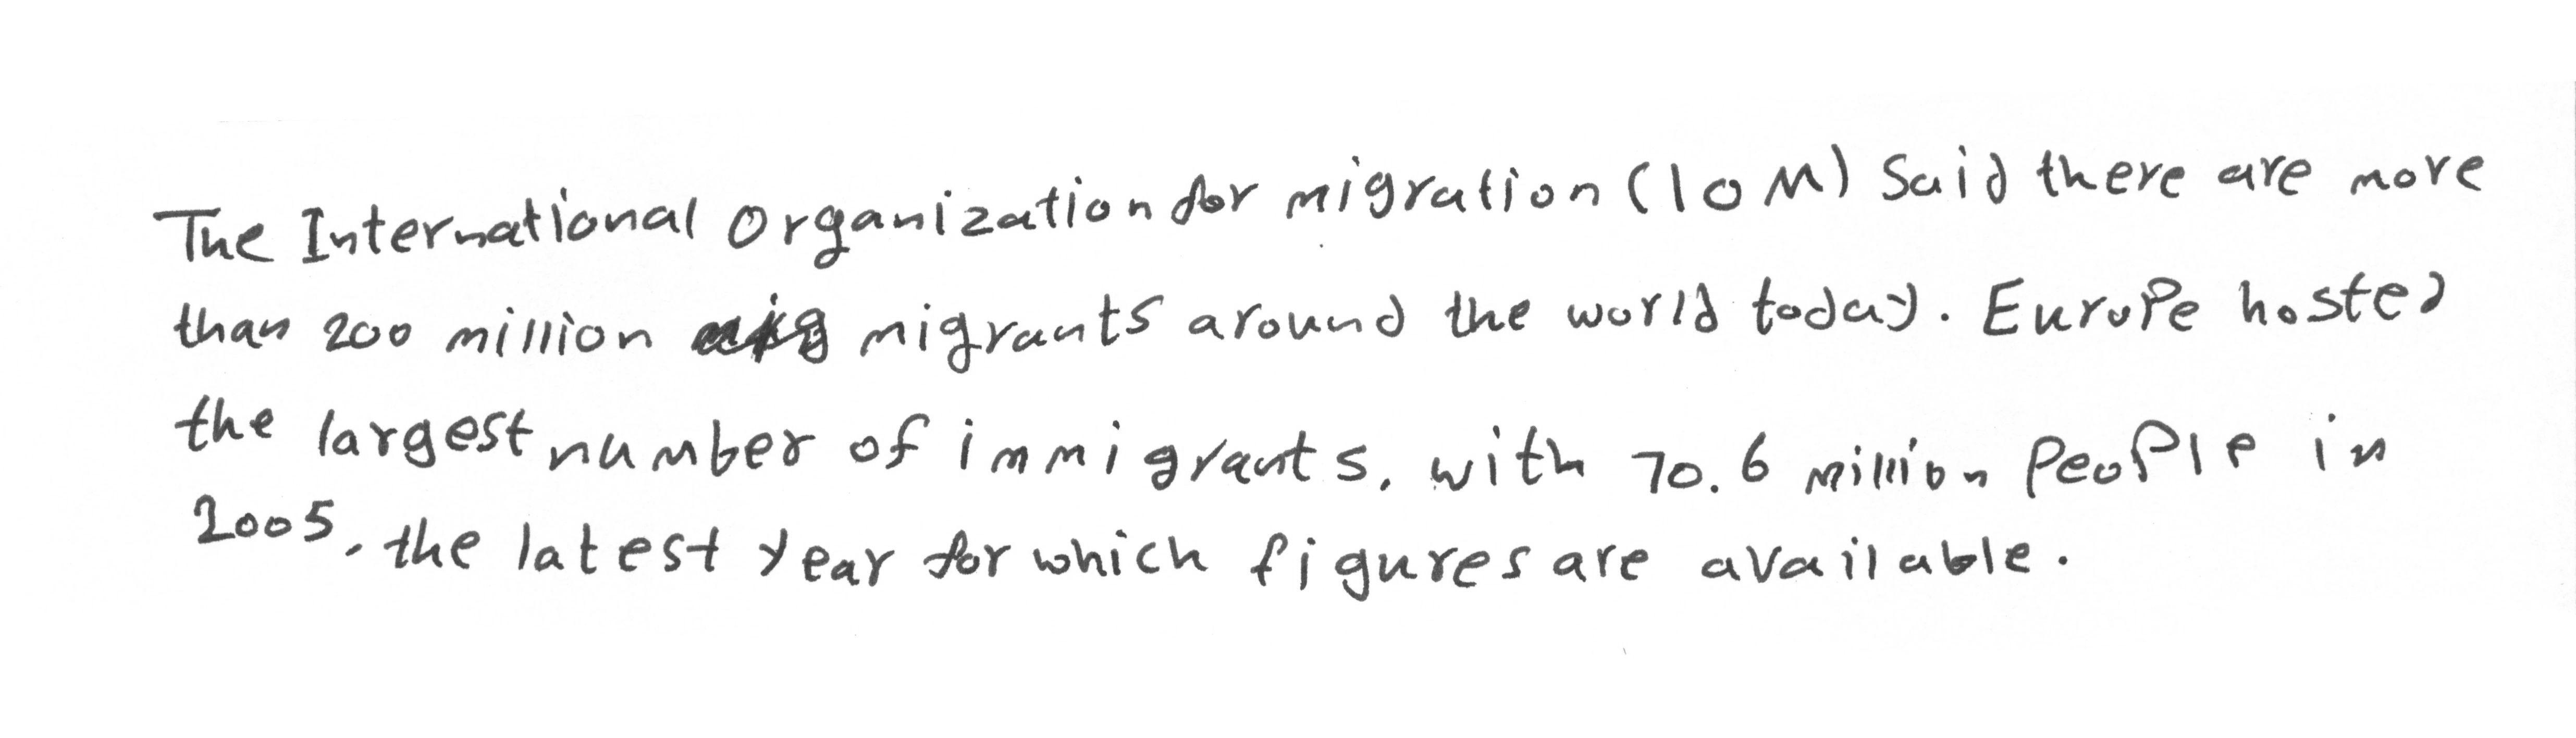 The International Organization for migration (IOM) Said there are more
than 200 million migrants around the world today. Europe hosted
the largest number of immigrants, with 70.6 million People in
2005, the latest year for which figures are available.